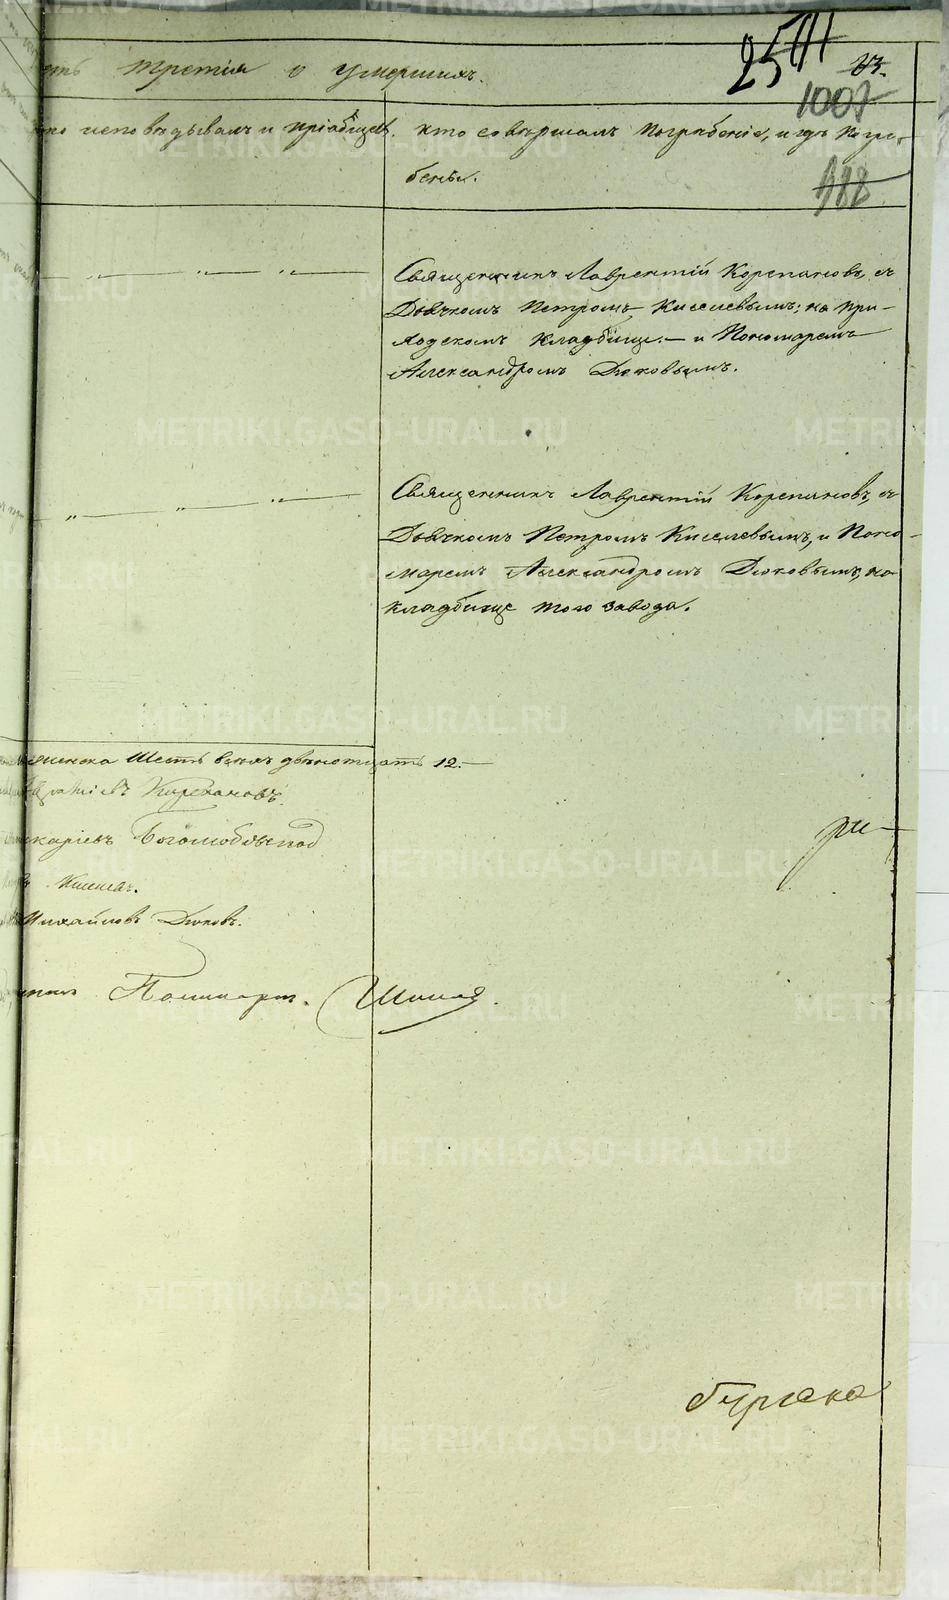 третія о умершихъ.
25
23.
1007
188
исповѣдывалъ и пріобщалъ.
кто совершалъ погребеніе, и гдѣ погре-
бены.
Священникъ Лаврентій Корепановъ, съ
Дьячкомъ Петромъ Киселевымъ; на при-
ходскомъ кладбище. — и Пономаремъ
Александромъ Дюковымъ.
Священникъ Лаврентій Корепановъ, съ
Дьячкомъ Петромъ Киселевымъ, и Поно-
маремъ Александромъ Дюковымъ, на
кладбище того завода.
Шесть всѣхъ двенотцать 12. —
Корепановъ.
Боголюбовъ
Михайловъ Дюковъ.
METRIKI.GASO-URAL.RU